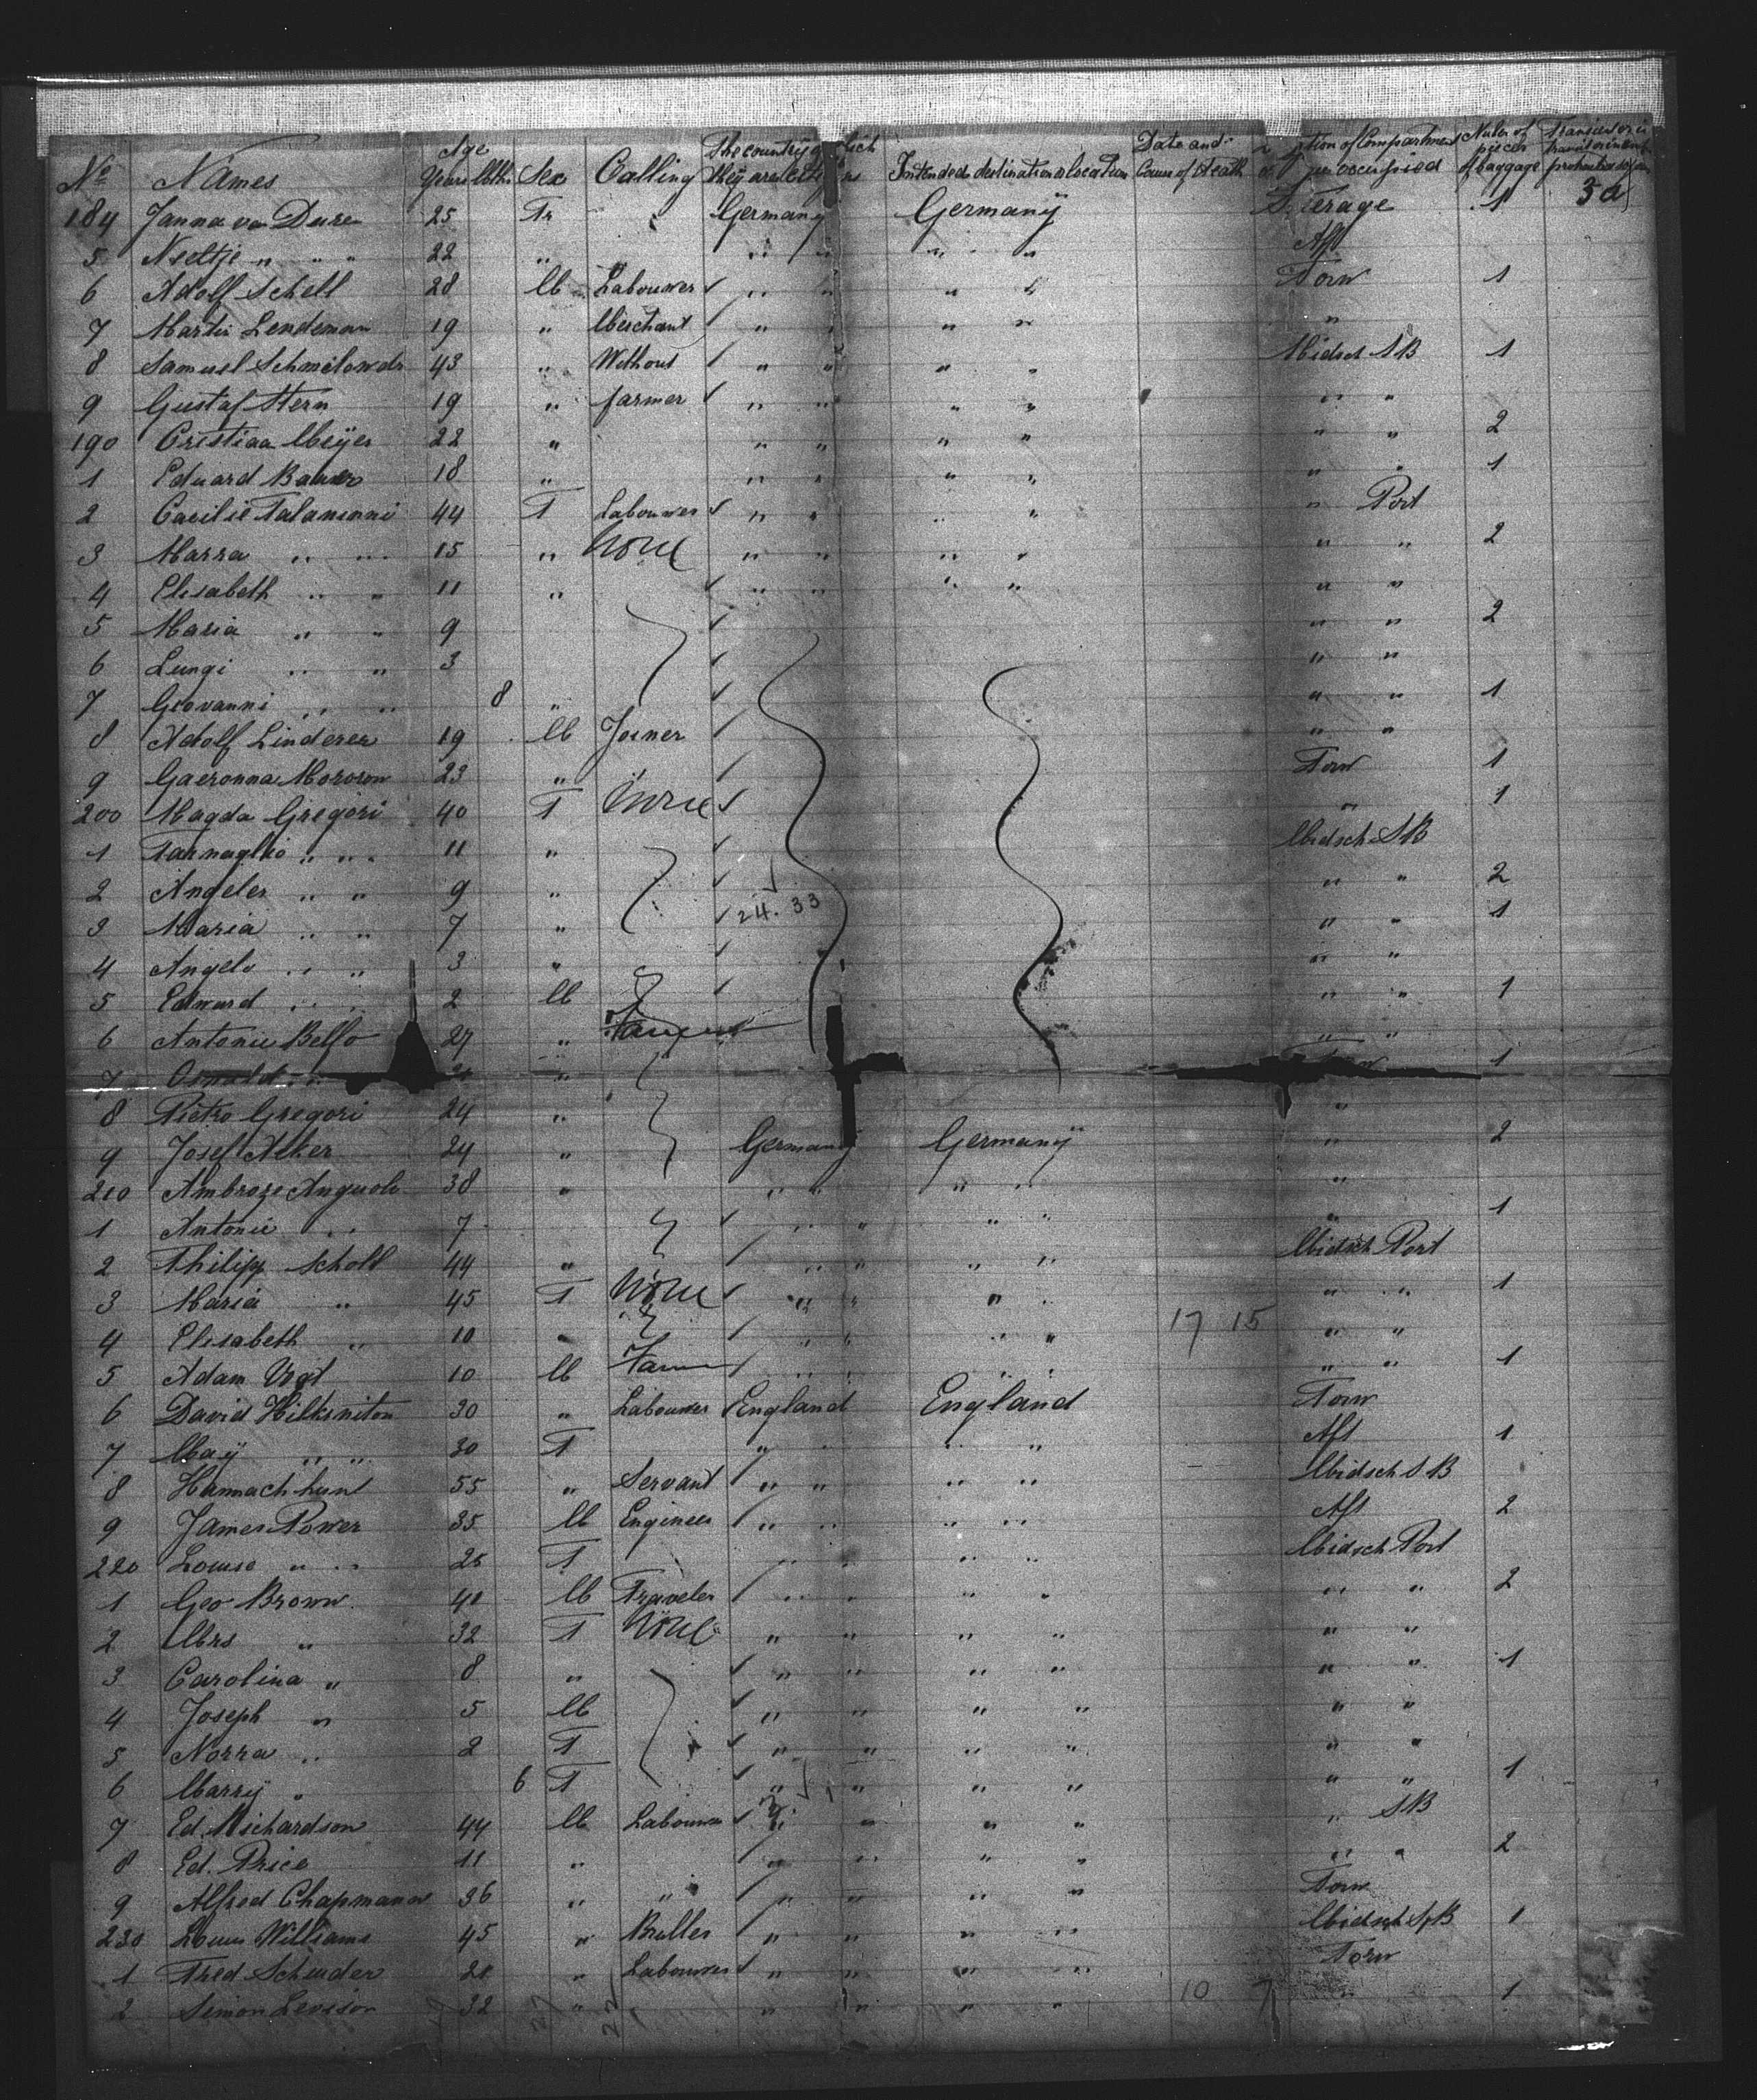 No Names Age Years Mths Sex Calling The country of which they are citizens Intended destination or location Date and Cause of death of Compartment occupied Nuber of pieces of baggage
184 Janna v Dure 25 Fr Germany Germany Sterage 1 3a
5 Neeltje " " " 22 " " " " " Aft
6 Adolf Schell 28 M Labouwer " " " " Forw 1
7 Martin Lendeman 19 " Merchant " " " " "
8 Samuel 43 " Without " " " " Midsch SB 1
9 Gustaf Stern 19 " farmer " " " " " "
190 Cristiaa Meijer 22 " " " " " " " 2
1 Eduard Bauer 18 " " " " " " " 1
2 Caecilie Talamoni 44 F Labouwer " " " " " Port
3 Marra " " 15 " None " " " " " " 2
4 Elisabeth " " 11 " " " " " " "
5 Maria " " 9 " " 2
6 Luugi " " 3 " "
7 Geovanni " " 8 " " " 1
8 Adolf Linderer 19 M Joiner " "
9 Gaeronna Mororon 23 " " Forw 1
200 Magda Gregori 40 F None " 1
1 " " 11 " Midsch SB
2 Angeler " " 9 " " " 2
3 Maria " " 7 " 24. 33 " " 1
4 Angelo " " 3 " " "
5 Edward " " 2 M " " 1
6 Antonie Bello 27 " Farmer " "
7 Osvald " " Forw 1
8 Pietro Gregori 24 " "
9 Josef Alker 24 " Germany Germany " 2
210 Ambroze Anguoli 38 " " " " " "
1 Antonie " 7 " " " " " 1
2 Philipp Scholl 44 " " " " " Midsch Port
3 Maria " 45 F None " " " " " " 1
4 Elisabeth " 10 " " " " " 17 15 " "
5 Adam Vogt 10 M Farmer " " " " 1
6 David Hilksniton 30 " Labouwer England England Forw
7 May " " 30 F " " " Aft 1
8 Hannach hunt 55 " Servant " " " " Midsch SB
9 James Power 35 M Engineer " " " " Aft 2
220 Louise " " 25 F " " " " Midsch Port
1 Geo Brown 41 M Traveler " " " " " " 2
2 Mrs " 32 F None " " " " " "
3 Carolina " 8 " " " " " " " 1
4 Joseph " 5 M " " " " " "
5 Norra " 2 F " " " " " "
6 Marry " 6 F " " " " " " 1
7 Ed. Richardson 44 M Labouwer " " " " " SB
8 Ed. Price 11 " " " " " " " 2
9 Alfred Chapmann 36 " " " " " " Forw
230 Louis Williams 45 " Butler " " " " Midsch SB 1
1 Fred Schuder 21 " Labouwer " " " " Forw
2 Simon Levison 32 " " " " " 10 7 " 1